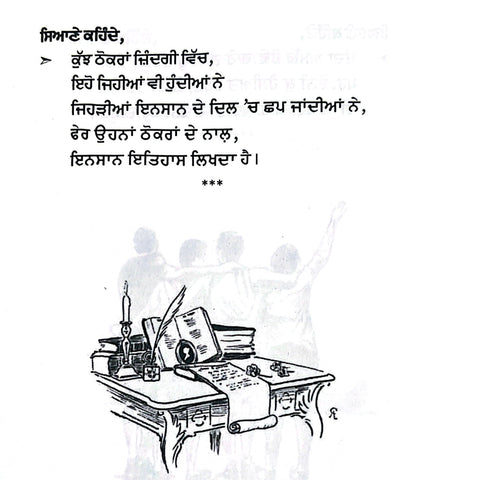 ਸਿਆਣੇ ਕਹਿੰਦੇ,
➣ ਕੁੱਝ ਠੋਕਰਾਂ ਜ਼ਿੰਦਗੀ ਵਿੱਚ,
ਇਹੋ ਜਿਹੀਆਂ ਵੀ ਹੁੰਦੀਆਂ ਨੇ
ਜਿਹੜੀਆਂ ਇਨਸਾਨ ਦੇ ਦਿਲ ’ਚ ਛਪ ਜਾਂਦੀਆਂ ਨੇ,
ਫੇਰ ਉਹਨਾਂ ਠੋਕਰਾਂ ਦੇ ਨਾਲ਼,
ਇਨਸਾਨ ਇਤਿਹਾਸ ਲਿਖਦਾ ਹੈ।
***